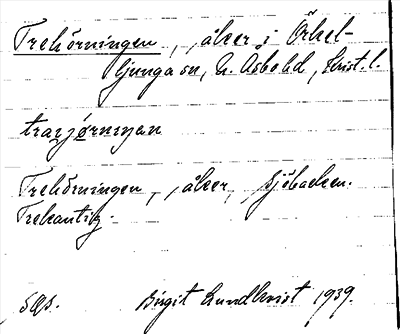 Trehörningen, åker i Örkel-
ljunga sn, N. Åsbohd, Krist. l.
träjørnıŋən
Trehörningen, åker, Sjöbacken.
Trekantig.
Birgit Lundkvist 1939.